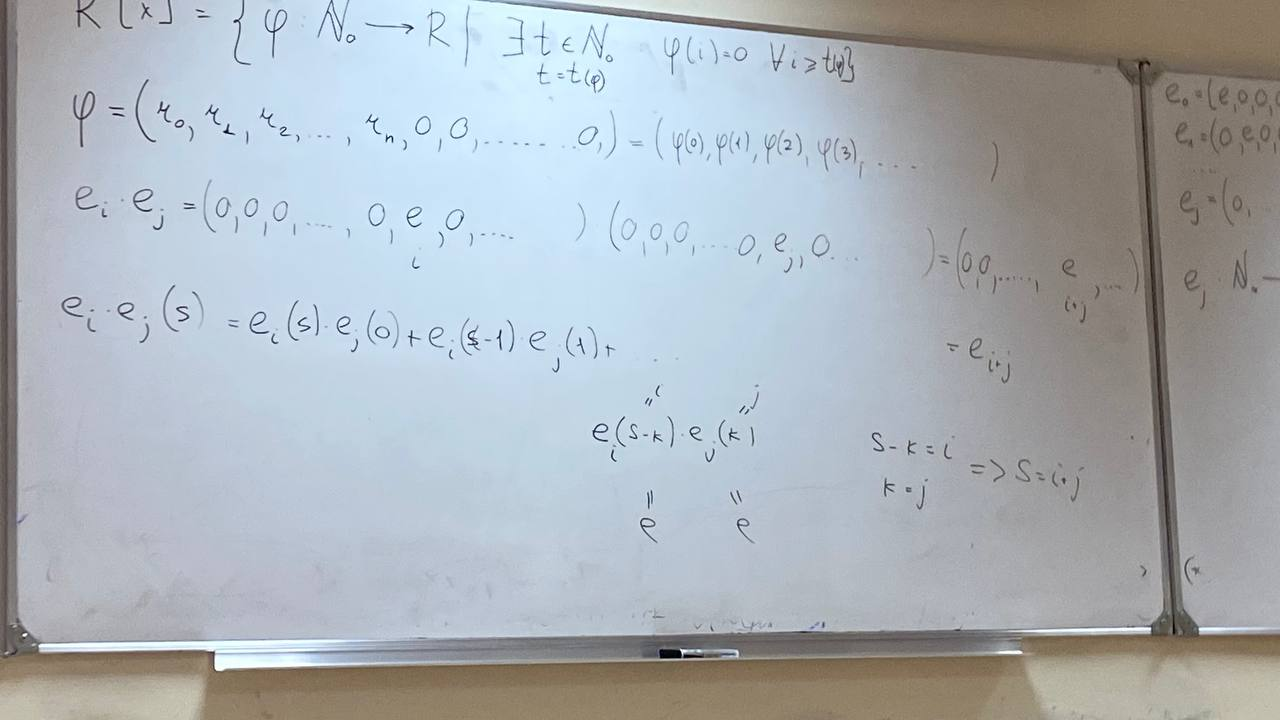 R[x] = { φ : N₀ → R | ∃ t ∈ N₀ φ(i)=0 ∀ i ⩾ t(φ)}
t = t(φ)
φ = (r₀, r₁, r₂, ..., rₙ, 0, 0, ...... 0,) = (φ(0), φ(1), φ(2), φ(3), .... )
eᵢ · eⱼ = (0,0,0, ..., 0, e, 0, .... ) (0,0,0, ... 0, eⱼ, 0... ) = (0,0, ....., e, ...)
i
i+j
eᵢ · eⱼ (s) = eᵢ(s) · eⱼ(0) + eᵢ(s-1) · eⱼ(1) + ...
= e_{i+j}
"i "j
eᵢ(s-k) · eⱼ(k)
s - k = i
k = j
=> s = i+j
" "
e e
e₀ = (e,0,0,0
e₁ = (0,e,0,
...
eⱼ = (0, ..
eⱼ : N₀ —
(x